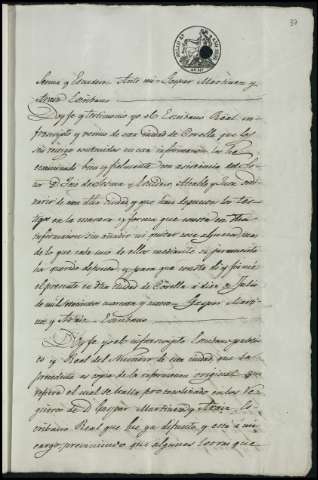 37
Sesma y Escudero Ante mi Gaspar Martinez y
Escribano
Doy fe y testimonio yo el Escribano Real in-
frascripto y vecino de esta Ciudad de Corella que las
contenidas en esta informacion las he
examinado bien y fielmente con asistencia del Se-
ñor Dn Sesma y Escudero Alcalde y Juez ordi-
nario de esta dha ciudad y que han depuesto los testi-
gos en la manera y forma que consta en dha
informacion sin añadir ni quitar cosa alguna mas
de lo que cada uno de ellos mediante su juramento
ha querido deponer y para que conste di y firmé
el presente en dha ciudad de Corella á diez de Julio
de mil setecientos noventa y nueve Gaspar Marti-
nez y Escribano
Doy fe yo el infrascripto Escribano publi-
co y Real del Numero de esta ciudad, que la
precedente es copia de la informacion original que
refiere el cual se halla protocolizado en los Re-
gistros de D. Gaspar Martinez y Es-
cribano Real que fue ya difunto y esta á mi
cargo, previniendo que algunas letras que